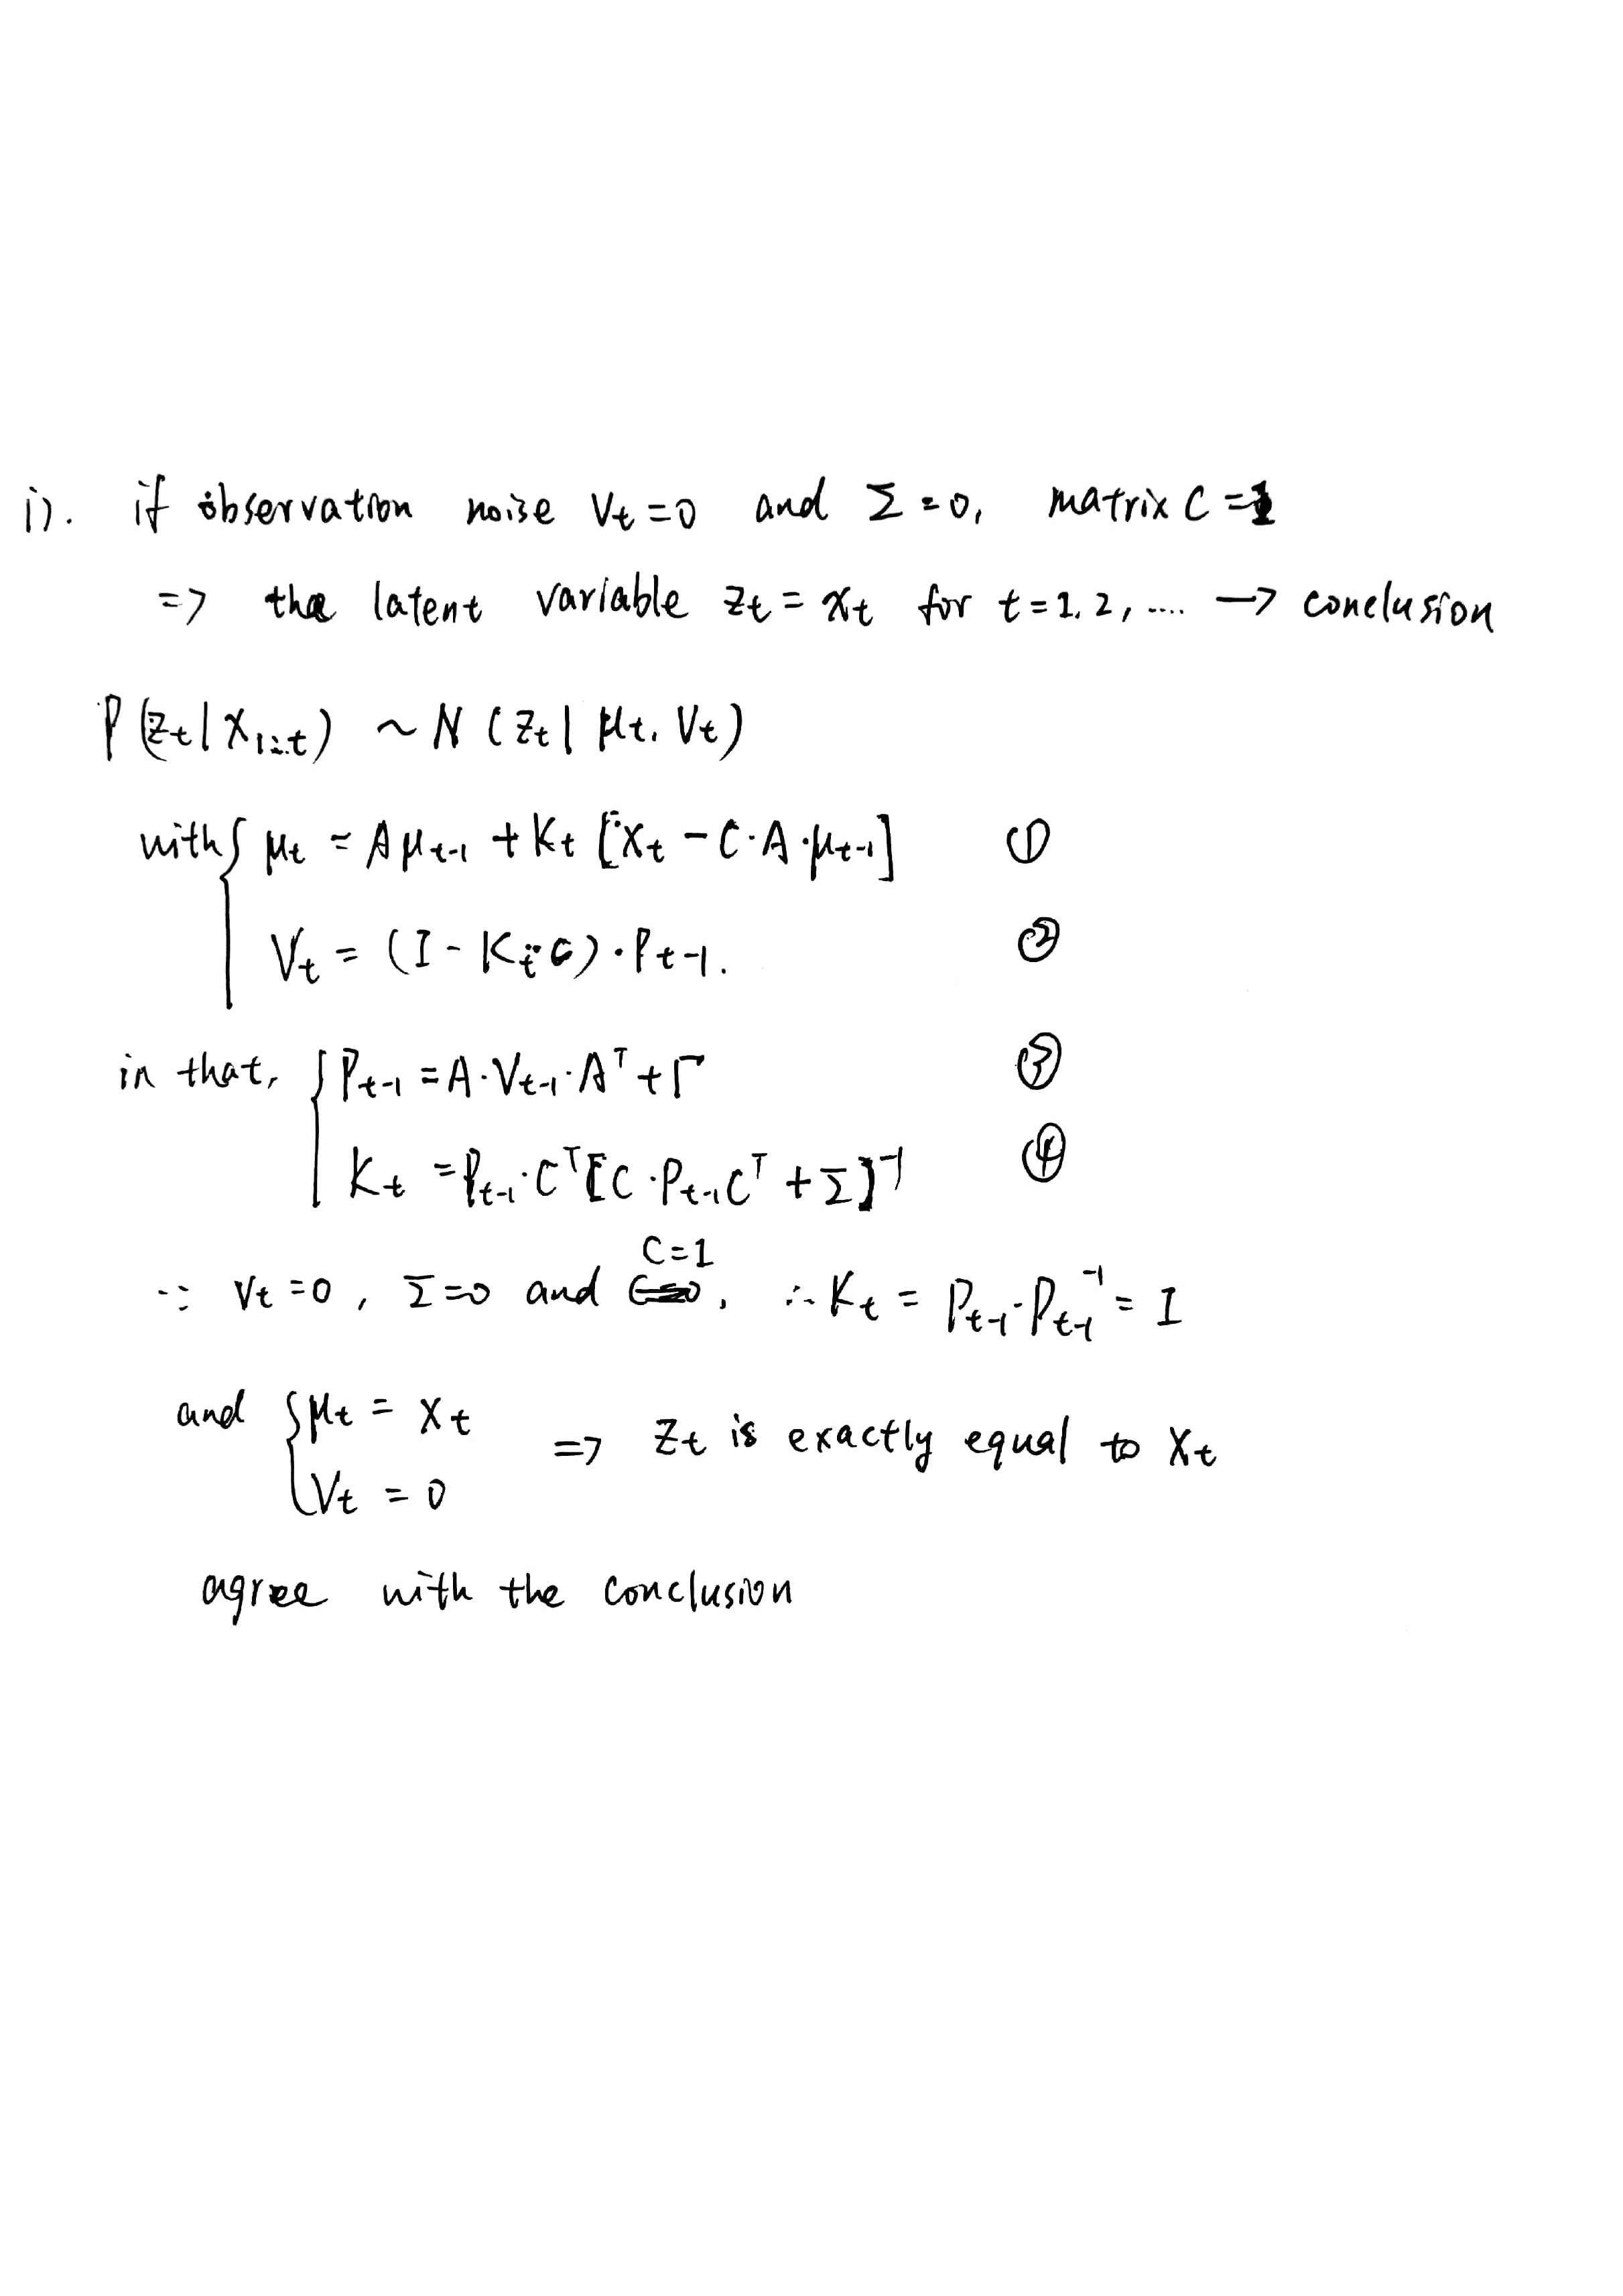 i). if observation noise Vt = 0 and Σ = 0, matrix C = 1
=> the latent variable Zt = Xt for t = 1, 2, .... → conclusion
P(Zt | X1:t) ~ N (Zt | μt, Vt)
with { μt = Aμt-1 + Kt [Xt - C·A·μt-1] ①
Vt = (I - Kt·C)·Pt-1. ②
in that, { Pt-1 = A·Vt-1·A^T + Γ ③
Kt = Pt-1·C^T[C·Pt-1C^T + Σ]^-1 ④
C=1
∵ Vt = 0, Σ = 0 and C=0, ∴ Kt = Pt-1·Pt-1^-1 = I
and { μt = Xt
Vt = 0 => Zt is exactly equal to Xt
agree with the conclusion